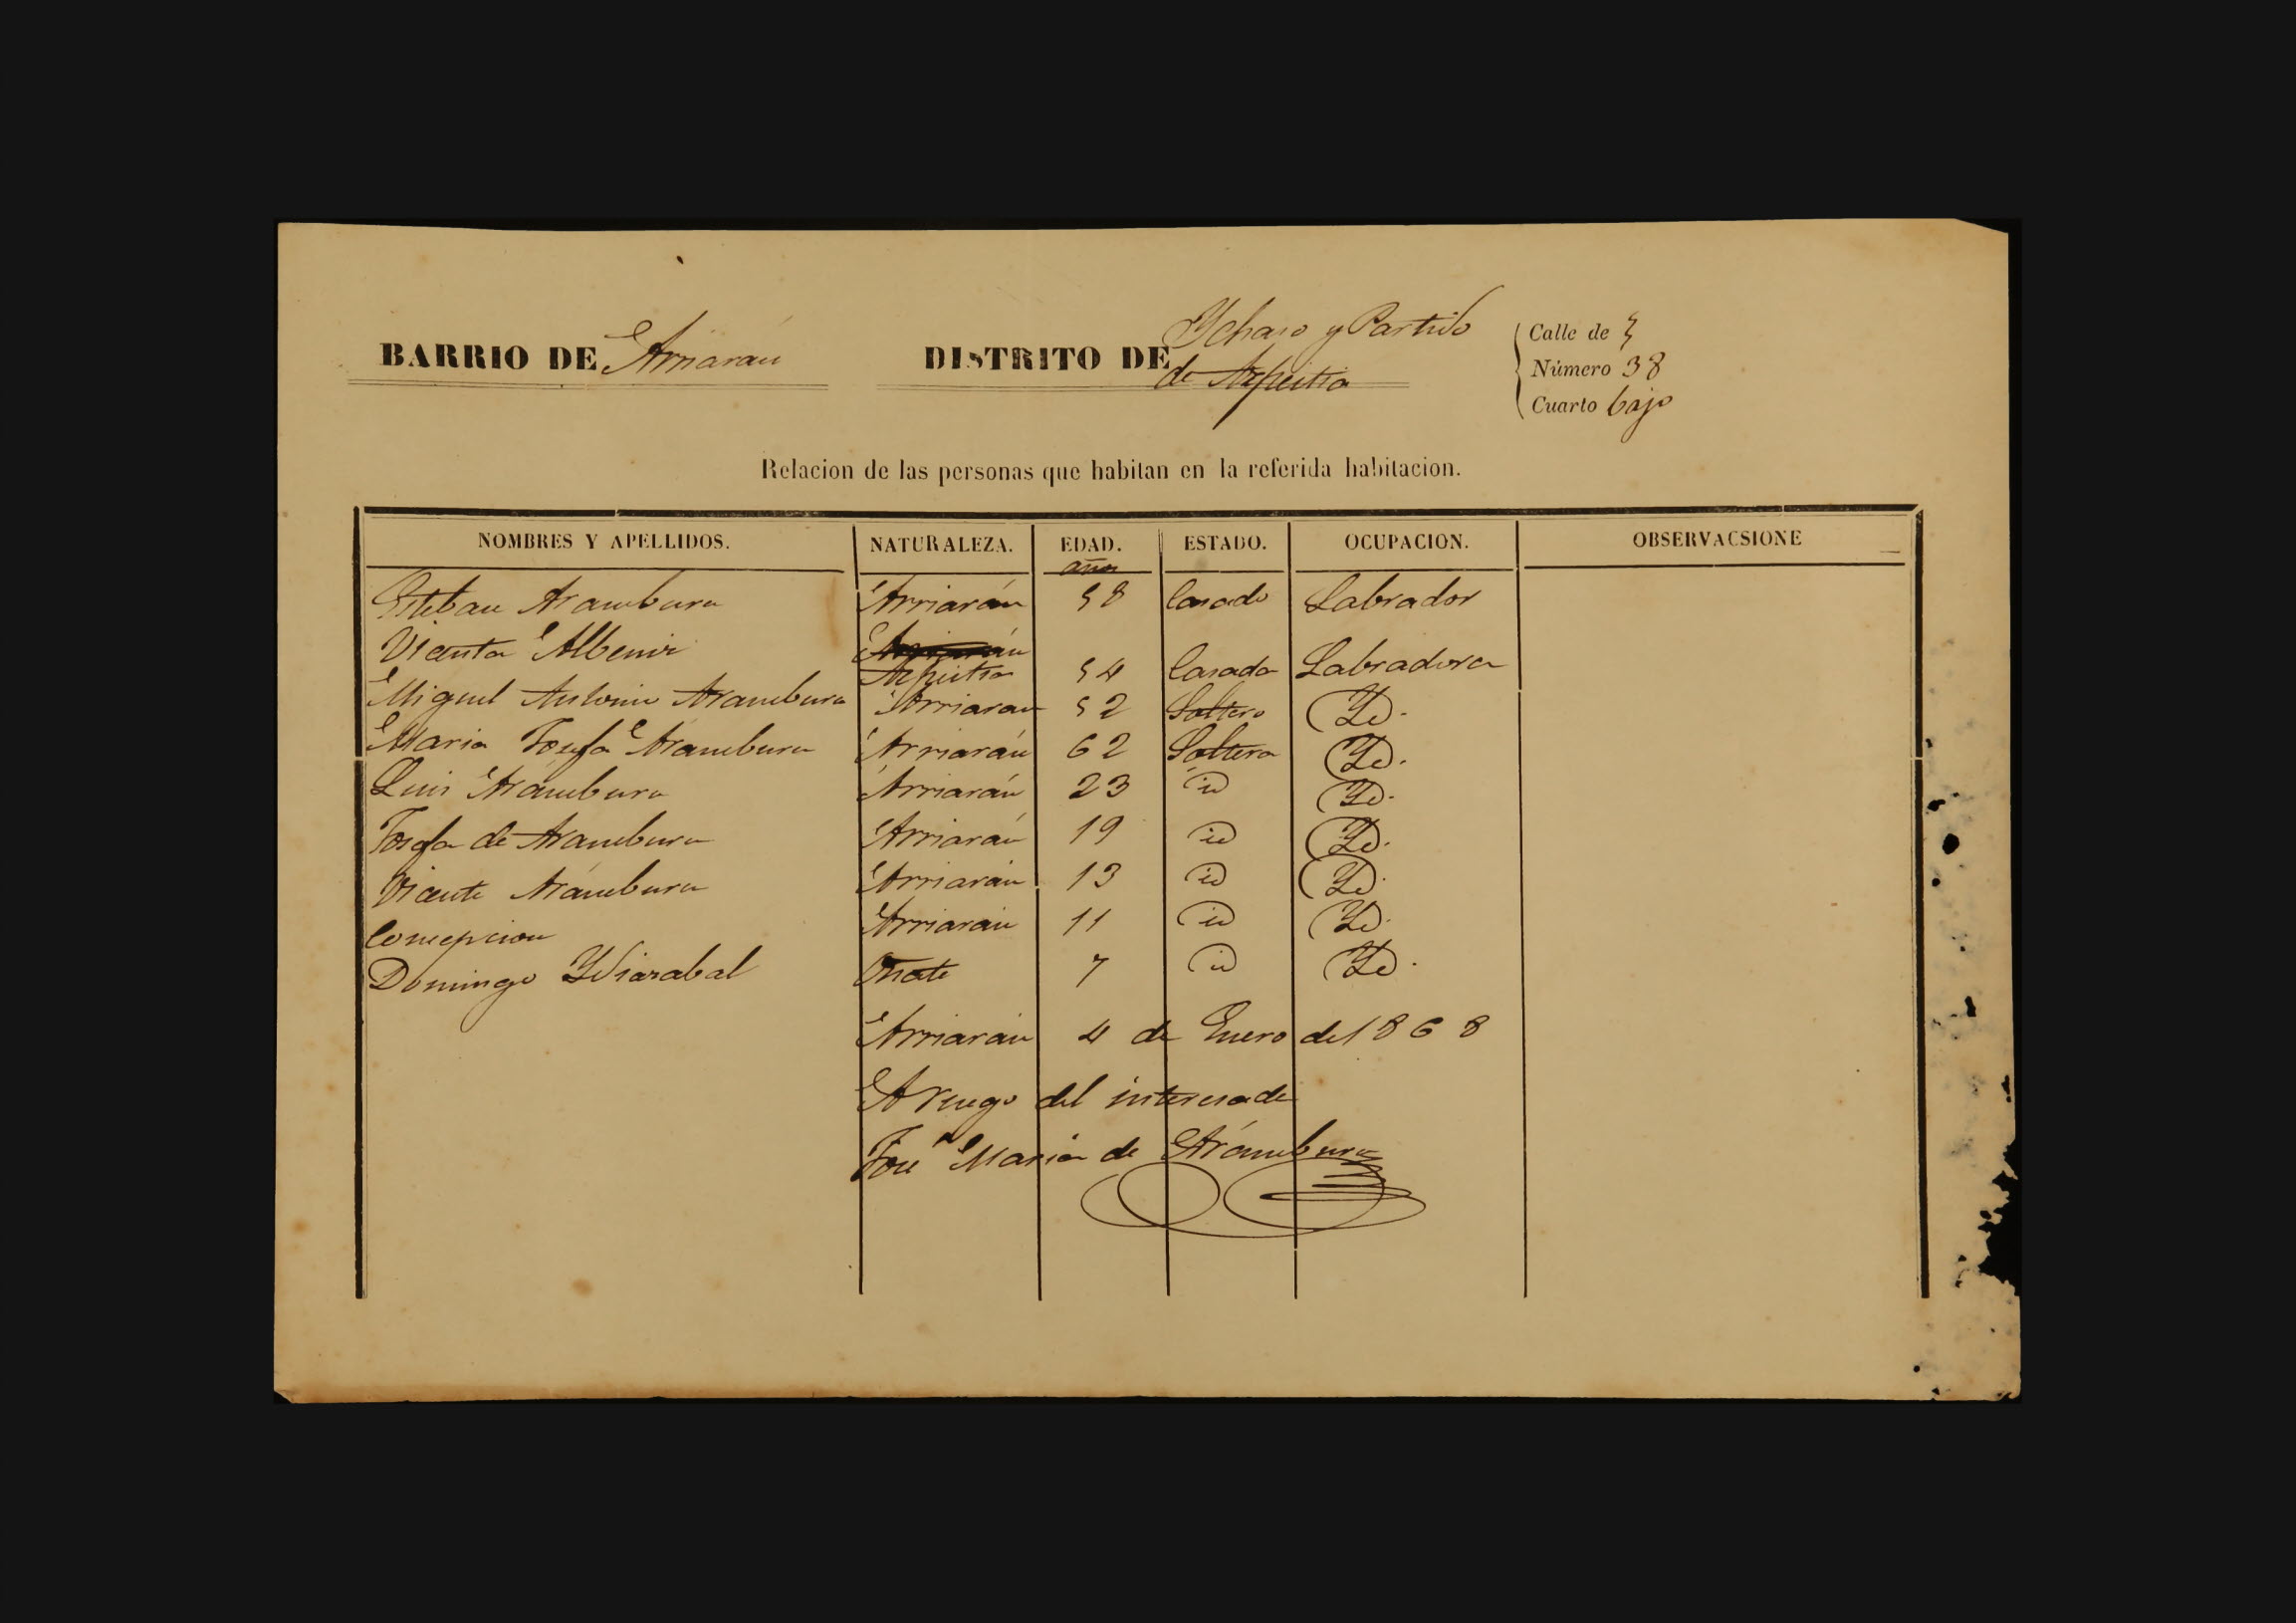 BARRIO DE Arriarán DISTRITO DE Ychaso y Partido
de Azpeitia
Calle de
Número 38
Cuarto bajo
Relacion de las personas que habitan en la referida habitacion.
NOMBRES Y APELLIDOS. NATURALEZA. EDAD. ESTADO. OCUPACION. OBSERVACSIONE
años
Esteban Aramburu Arriarán 58 Casado Labrador
Vicenta Albenir Arriarán
Azpeitia 54 Casada Labradora
Miguel Antonio Aramburu Arriaran 52 Soltero Yd.
Maria Josefa Aramburu Arriarán 62 Soltera Yd.
Luis Arámburu Arriarán 23 id Yd.
Josefa de Aramburu Arriarán 19 id Yd.
Vicente Arámburu Arriarán 13 id Yd.
Concepcion Arriarán 11 id Yd.
Domingo Ydiazabal Oñate 7 id Yd.
Arriarán 4 de Enero de 1868
A ruego del interesado
José Maria de Arámburu